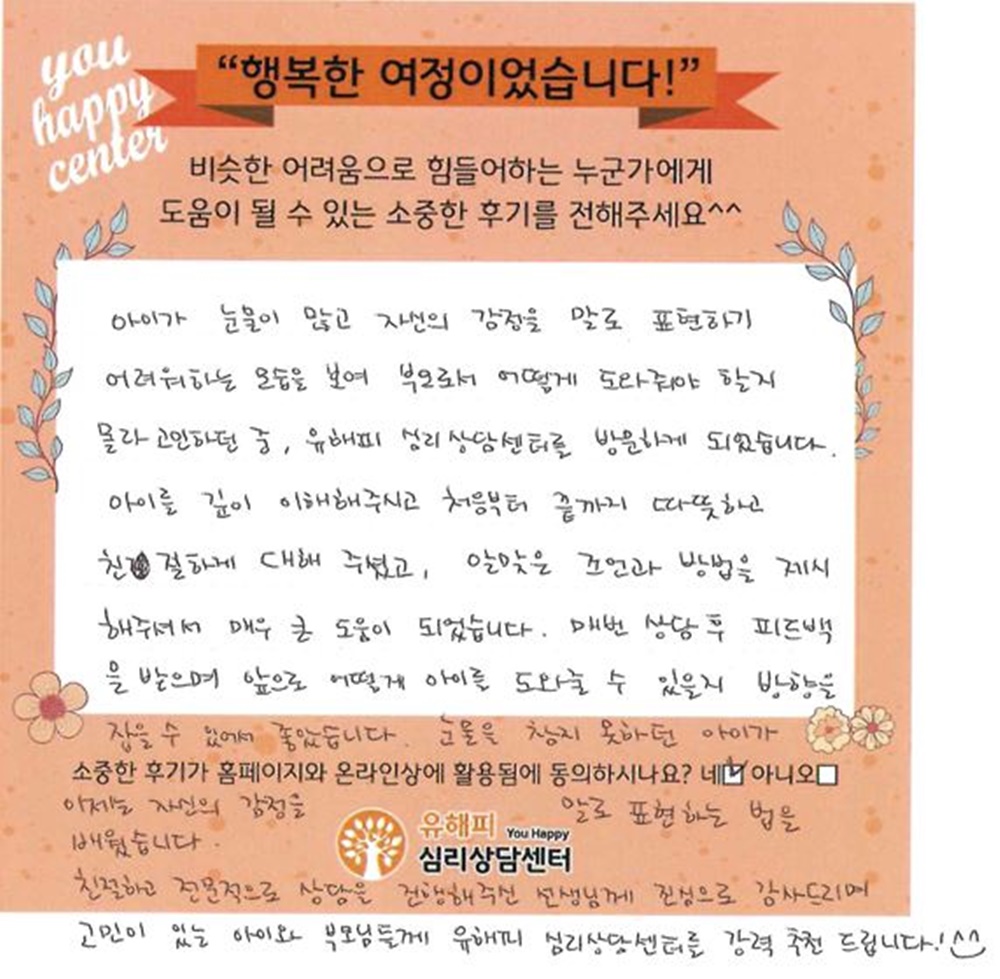 you
happy
center
“행복한 여정이었습니다!”
비슷한 어려움으로 힘들어하는 누군가에게
도움이 될 수 있는 소중한 후기를 전해주세요^^
아이가 눈물이 많고 자신의 감정을 말로 표현하기
어려워하는 모습을 보여 부모로서 어떻게 도와줘야 할지
몰라 고민하던 중, 유해피 심리상담센터를 방문하게 되었습니다.
아이를 깊이 이해해주시고 처음부터 끝까지 따뜻하고
친절하게 대해 주셨고, 알맞은 조언과 방법을 제시
해주셔서 매우 큰 도움이 되었습니다. 매번 상담 후 피드백
을 받으며 앞으로 어떻게 아이를 도와줄 수 있을지 방향을
잡을 수 있어서 좋았습니다. 눈물을 참지 못하던 아이가
소중한 후기가 홈페이지와 온라인상에 활용됨에 동의하시나요? 네☑ 아니오□
이제는 자신의 감정을 말로 표현하는 법을
배웠습니다.
유해피 You Happy
심리상담센터
친절하고 전문적으로 상담을 진행해주신 선생님께 진심으로 감사드리며
고민이 있는 아이와 부모님들께 유해피 심리상담센터를 강력 추천 드립니다! ^^